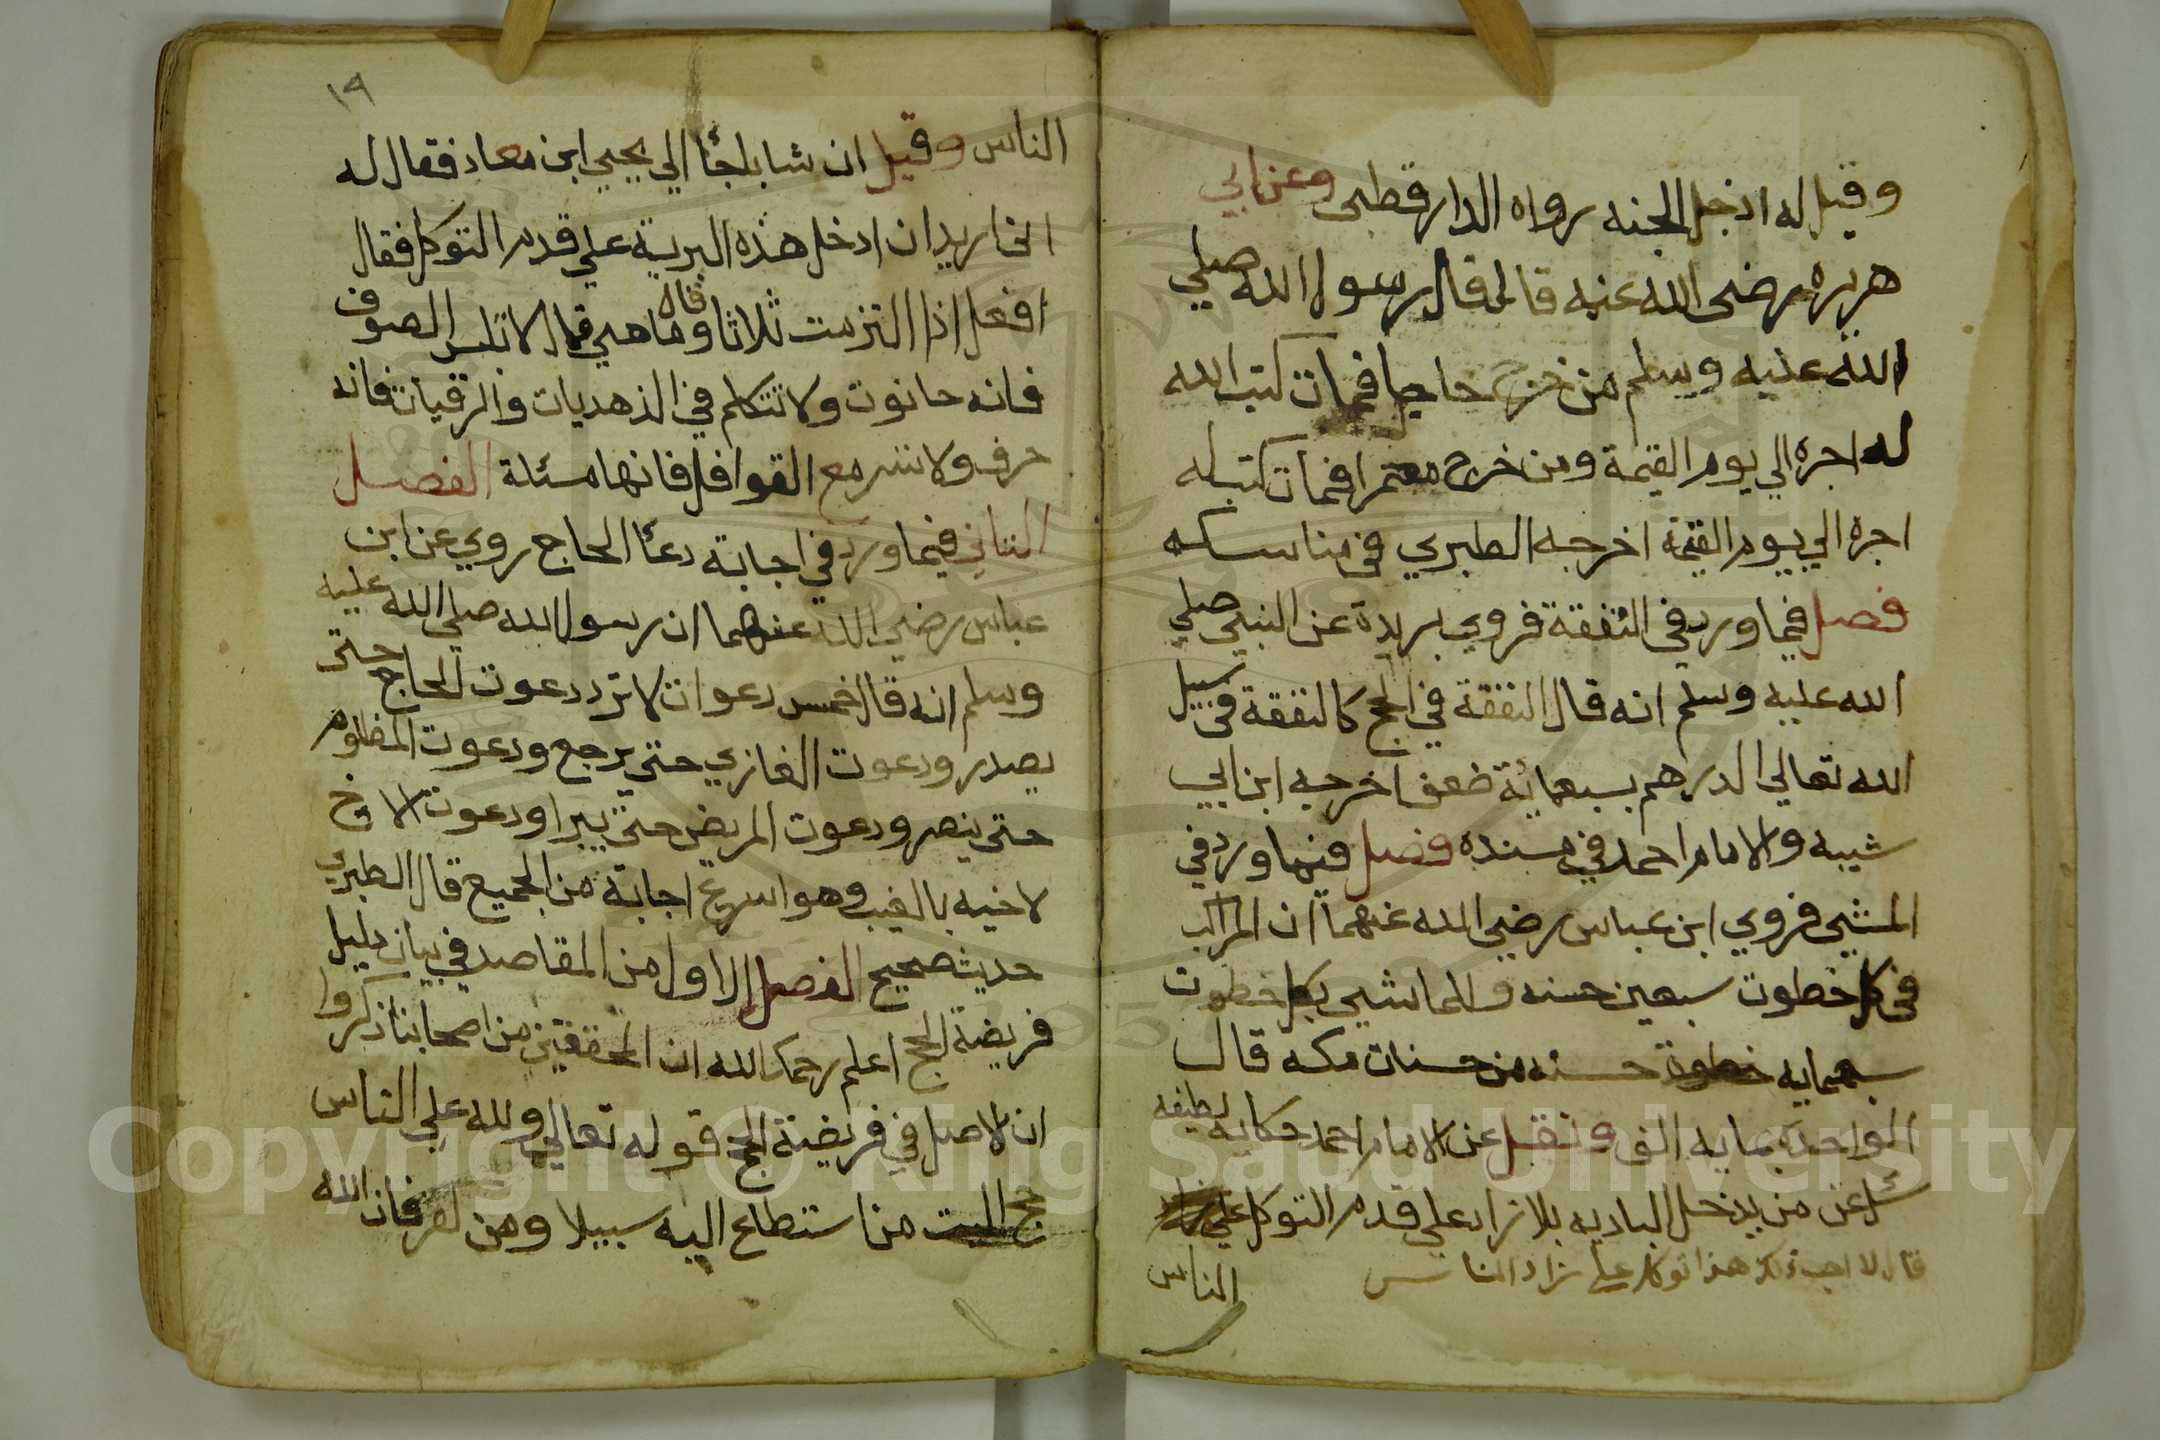 وقيل له ادخل الجنه رواه الدارقطنى وعن ابي
هريره رضى الله عنه قال قال رسول الله صلي
الله عليه وسلم من خرج حاجا فمات كتب الله
له اجره الي يوم القيمة ومن خرج معتمرا فمات كتب له
اجره الي يوم القيمة اخرجه الطبري في مناسكه
فصل فيما ورد في النفقة فروي بريدة عن النبي صلي
الله عليه وسلم انه قال النفقة في الحج كالنفقة في سبيل
الله تعالي الدرهم بسبعمائة ضعف اخرجه ابن ابي
شيبه والامام احمد في مسنده فصل فيما ورد في
المشي فروي ابن عباس رضي الله عنهما ان الراكب
في كل خطوت سبعين حسنه وللماشي بكل خطوت
سبعمايه حسنه من حسنات مكه قال
الواحدة بمايه الف ونقل عن الامام احمد حكايه لطيفه
سئل عن من يدخل الباديه بلا زاد علي قدم التوكل
قال لا احب ذلك هذا توكل علي زاد الناس
الناس
١٩
الناس وقيل ان شابا لجأ الي يحيي ابن معاد فقال له
اني اريد ان ادخل هذه البرية علي قدم التوكل فقال
افعل اذا التزمت ثلاثا قال وما هي قال لا تلبس الصوف
فانه حانوت ولا تتكلم في الزهديات والرقيات فانه
حرف ولا تسر مع القوافل فانها مسئلة الفصل
الثاني فيما ورد في اجابة دعأ الحاج روي عن ابن
عباس رضي الله عنهما ان رسول الله صلي الله عليه
وسلم انه قال خمس دعوات لا ترد دعوت الحاج حتى
يصدر ودعوت الغازي حتي يرجع ودعوت المظلوم
حتي ينصر ودعوت المريض حتي يبرا ودعوت الاخ
لاخيه بالغيب وهو اسرع اجابة من الجميع قال الطبري
حديث صحيح الفصل الاول من المقاصد في بيان دليل
فريضة الحج اعلم رحمك الله ان المحققين من اصحابنا ذكروا
ان الاصل في فريضة الحج قوله تعالي ولله علي الناس
حج البيت من استطاع اليه سبيلا ومن كفر فان الله
Copyright © King Saud University